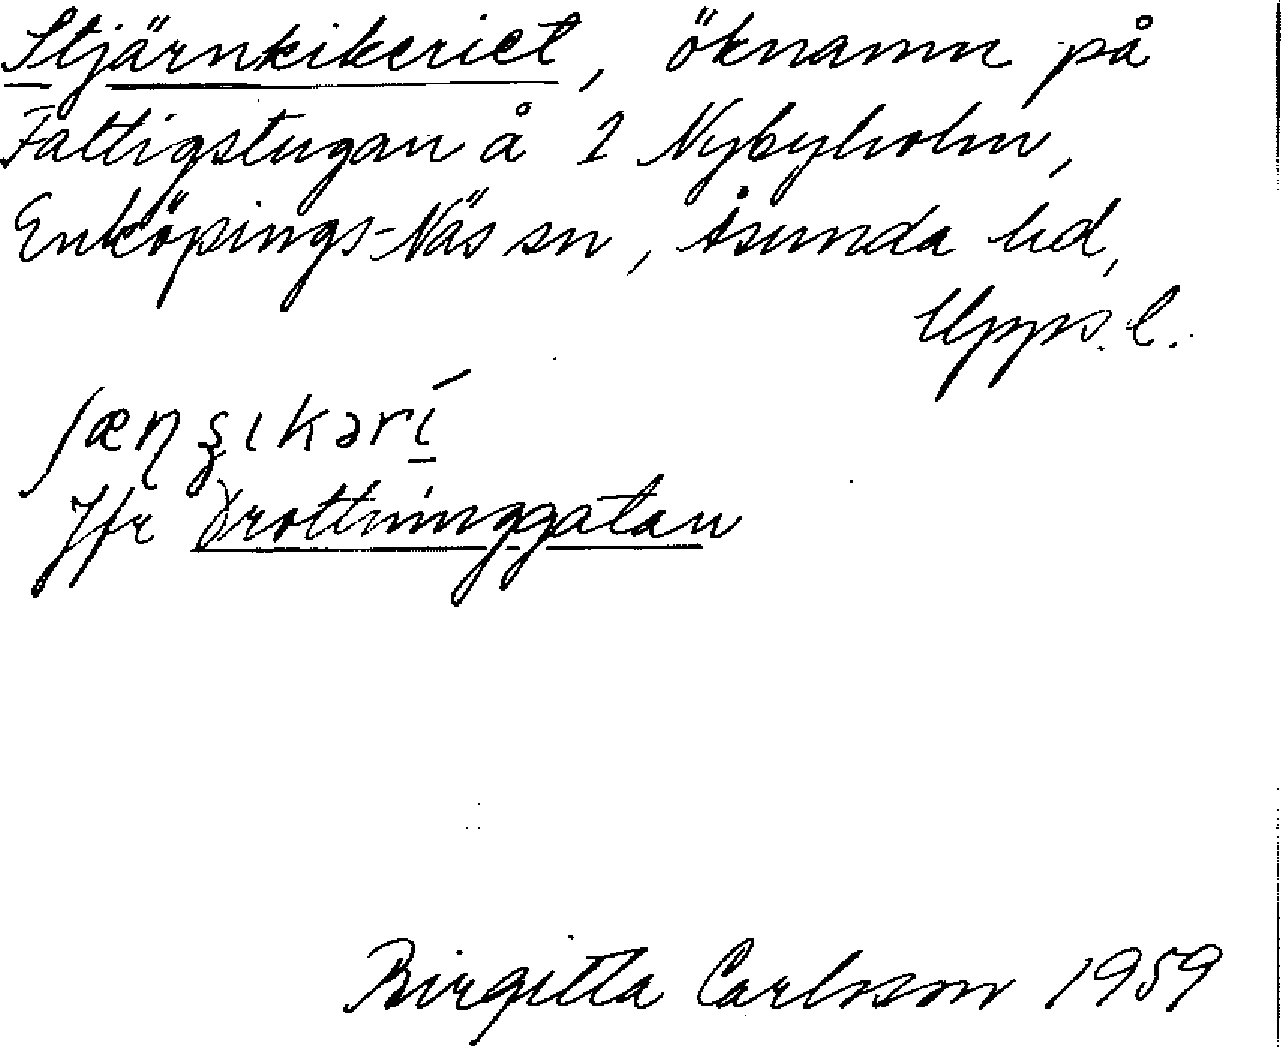 Stjärnkikeriet, öknamn på
Fattigstugan å 2 Nybyholm,
Enköpings-Näs sn, Åsunda hd,
Upps. l.
ʃæɳʂıkərí
Jfr Drottninggatan
Birgitta Carlsson 1959